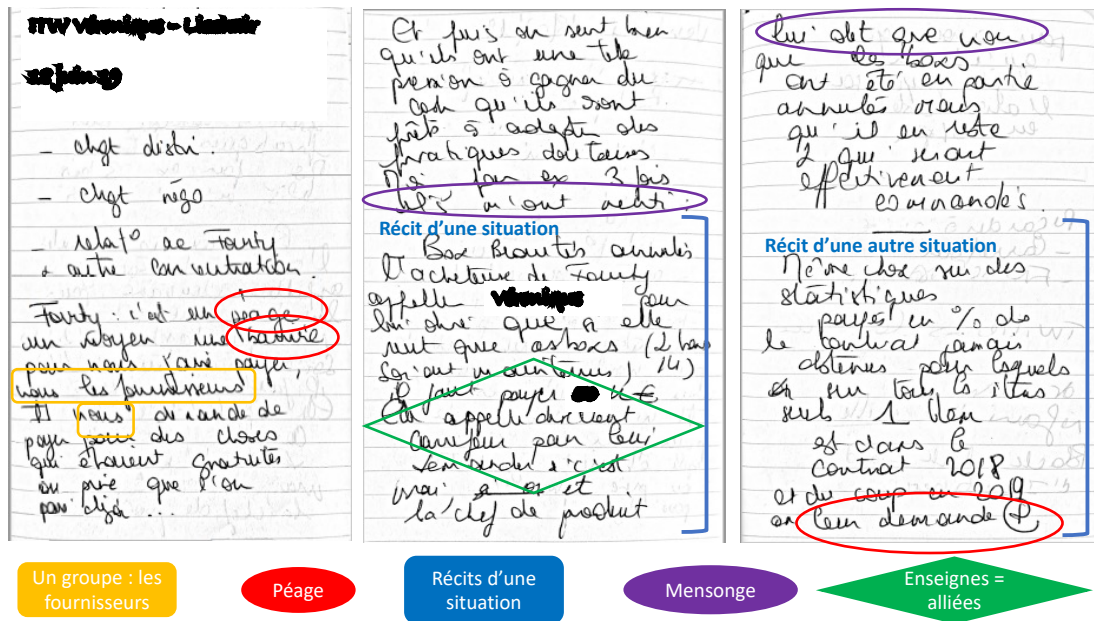 ITW Véronique -
juin 19
- chgt distri.
- chgt négo
- relat° ac Fourty
& autre concentration.
Fourty : c'est un péage
un moyen une
pour nous faire payer,
nous les fournisseurs
Il nous demande de
payer pour des choses
qui étaient gratuites
ou pire que l'on
paie déjà ...
Et puis on sent bien
qu'ils ont une telle
pression à gagner du
cash qu'ils sont
prêts à adopter des
pratiques douteuses
par ex 3 fois
ils m'ont menti.
Récit d'une situation
Box Beautés annulés
L'acheteuse de Fourty
appelle Véronique pour
lui dire que si elle
veut que (2 box
soient maintenus) 14)
il faut payer K€
appelle directement
Carrefour pour leur
demander si c'est
vrai et
la chef de produit
lui dit que non
que des boxes
ont été en partie
annulés mais
qu'il en reste
2 qui seront
effectivement
commandés.
Récit d'une autre situation
Même chose sur des
statistiques
payés en % de
le contrat jamais
obtenus pour lesquels
sur tous les items
seuls 1 item
est dans le
contrat 2018
et du coup en 2019
on leur demande
Un groupe : les
fournisseurs
Péage
Récits d'une
situation
Mensonge
Enseignes =
alliées